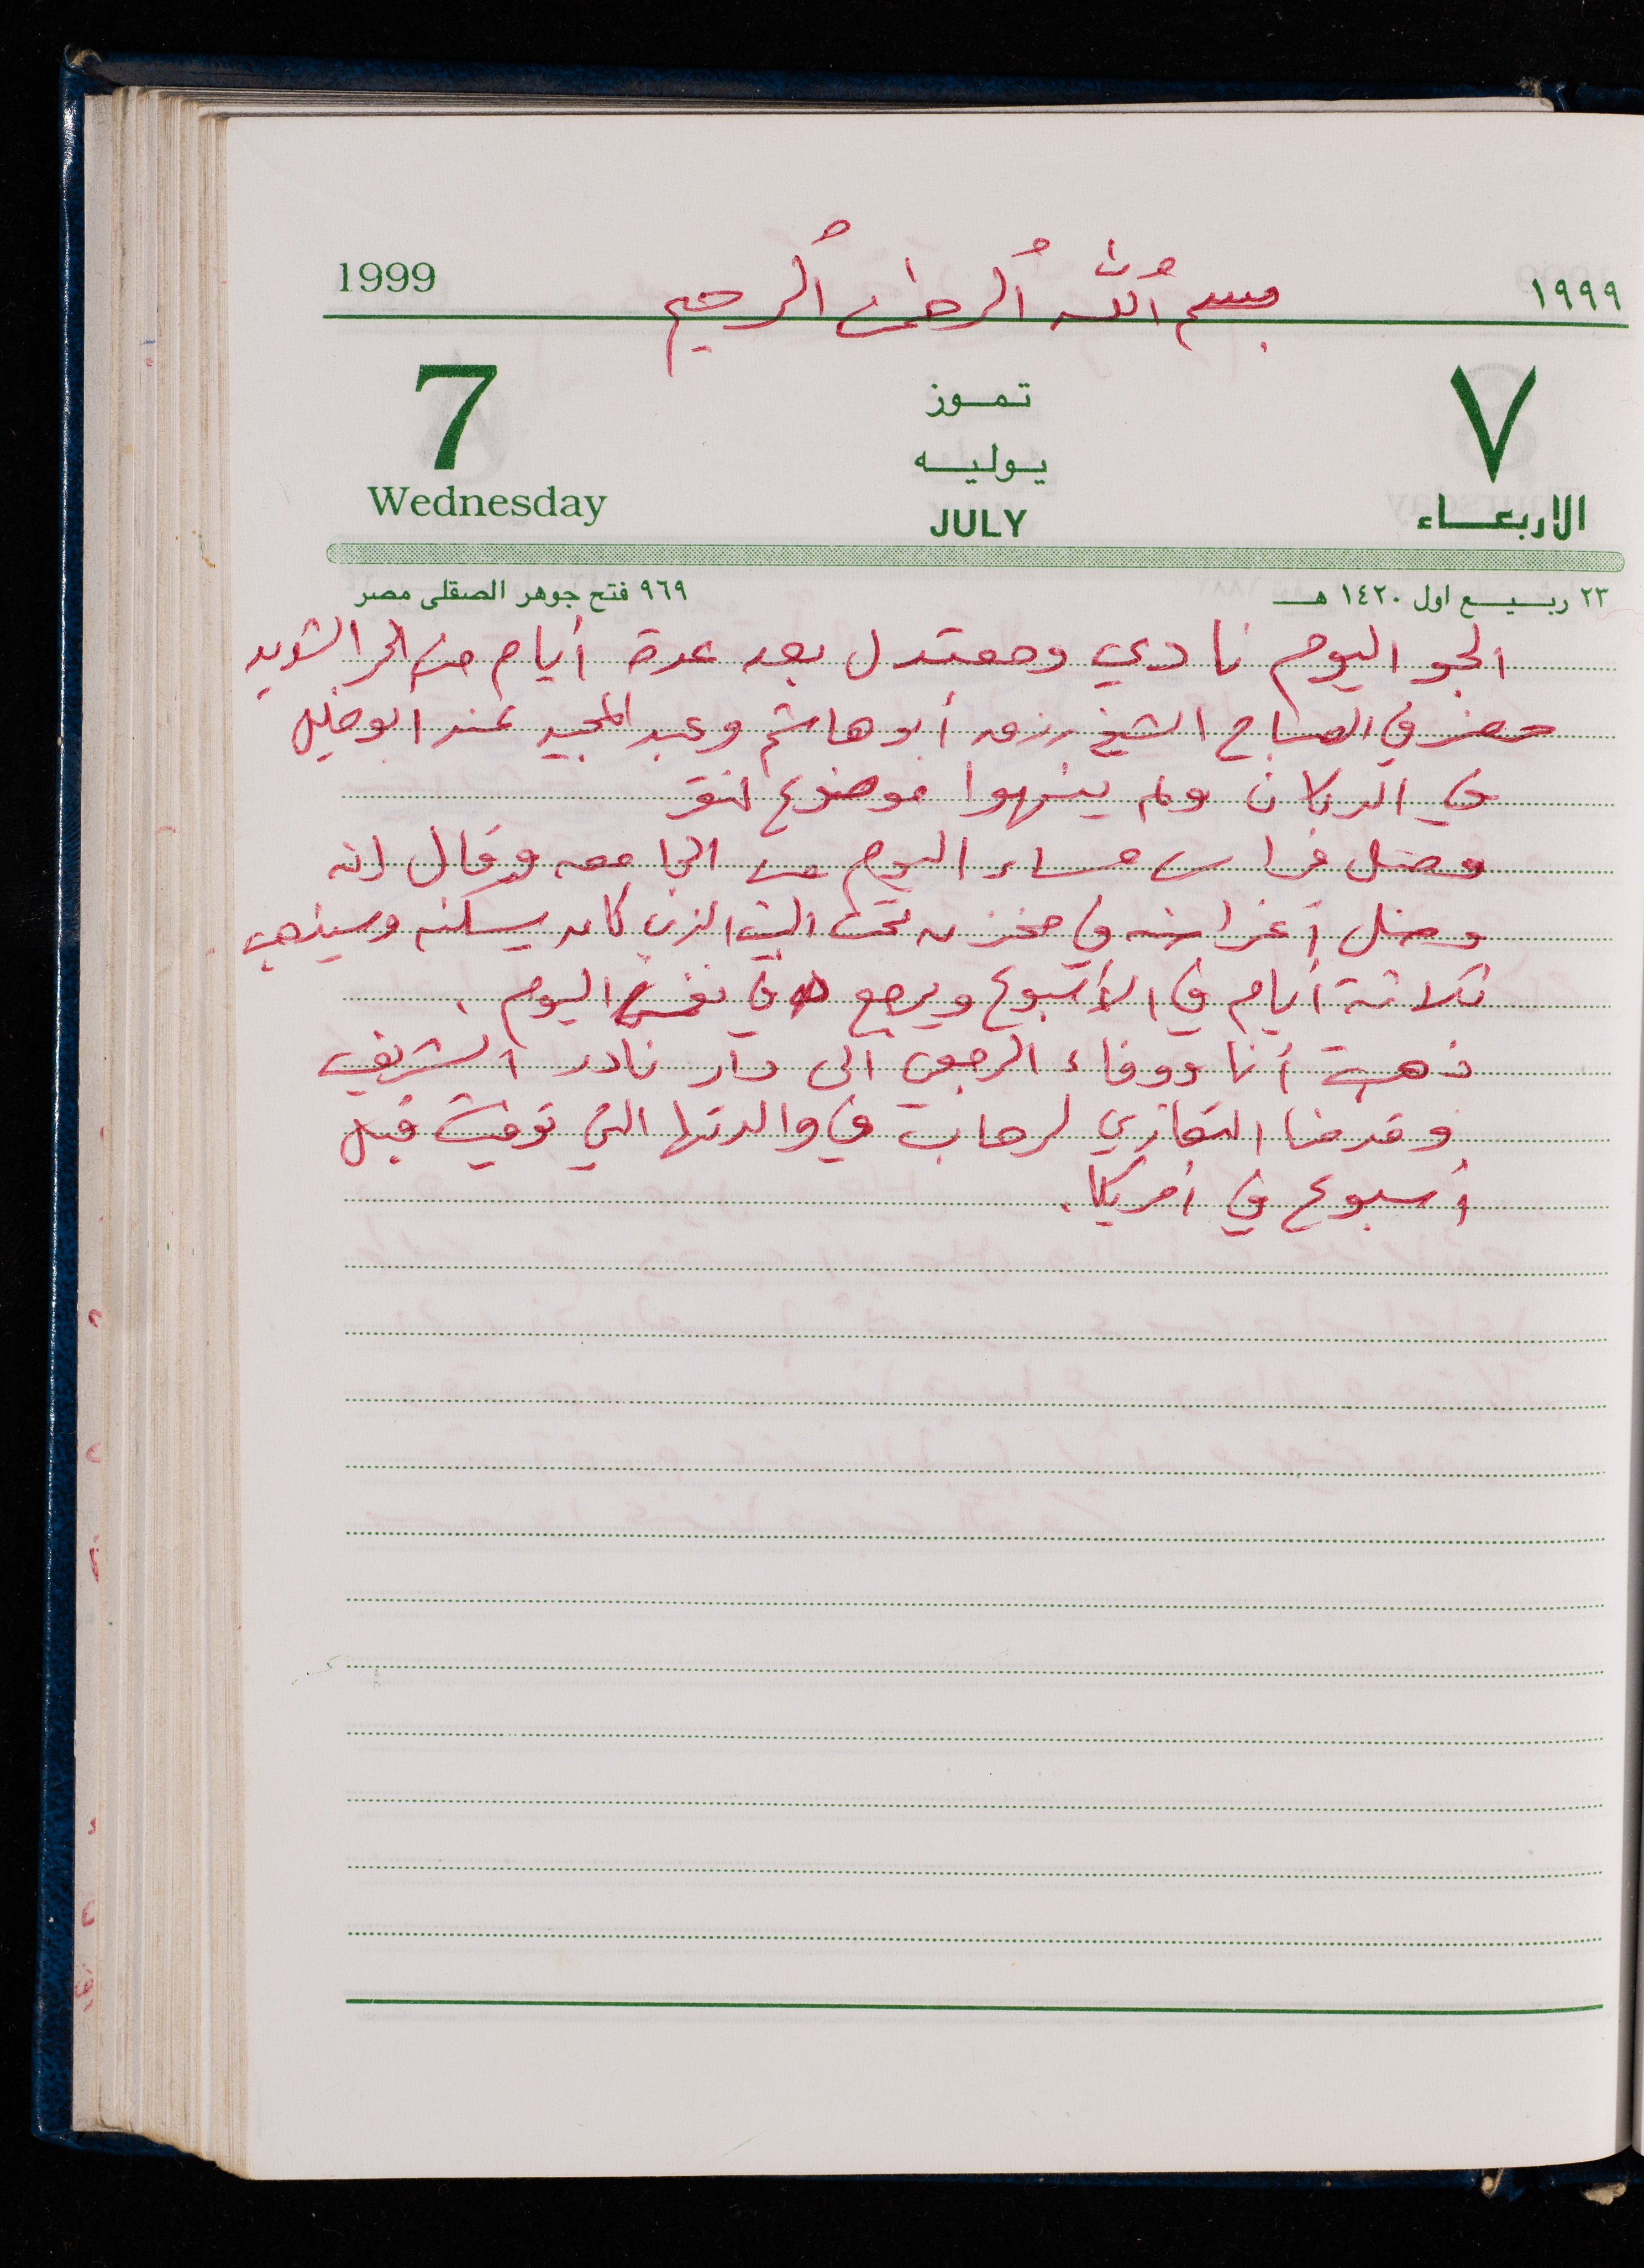 بسم الله الرحمن الرحيم
1999
١٩٩٩
7
تموز
٧
يوليه
Wednesday
JULY
الاربعاء
٢٣ ربيع اول ١٤٢٠ هـ
٩٦٩ فتح جوهر الصقلى مصر
الجو اليوم نادي ومعتدل بعد عدة أيام من الحر الشديد
حضر في الصباح الشيخ رزق أبو هاشم وعبد المجيد عند ابو خليل
في الدكان ولم ينهوا موضوع
وصل فراس مساء اليوم من الجامعه وقال انه
وضل أغراضه في مخزن تحت البيت الذي كان يسكنه وسيذهب
ثلاثة أيام في الأسبوع ويرجع في نفس اليوم .
ذهبت أنا ووفاء الرجعي الى دار نادر الشريف
وقدمنا التعازي لرحاب في والدتها التي توفيت قبل
أسبوع في أمريكا .